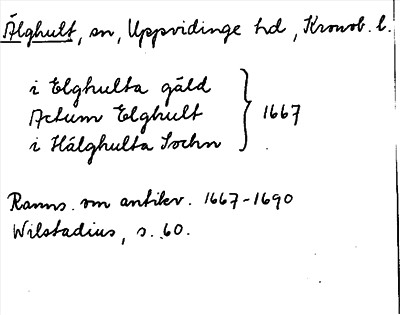 Älghult, sn, Uppvidinge hd, Kronob. l.
i Elghulta gäld
Actum Elghult
i Hälghulta Sochn
1667
Ranns. om antikv. 1667-1690
Wilstadius, s. 60.